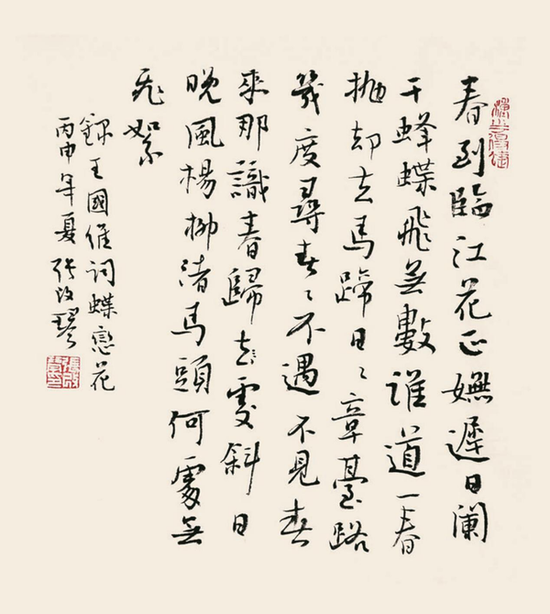 春到臨江花正嫵遲日闌
干蜂蝶飛無數誰道一春
拋却去馬蹄日〻章臺路
幾度尋春〻不遇不見春
來那識春歸去處斜日
晚風楊柳渚馬頭何處無
飛絮
錄王國維詞蝶戀花
丙申年夏張改琴